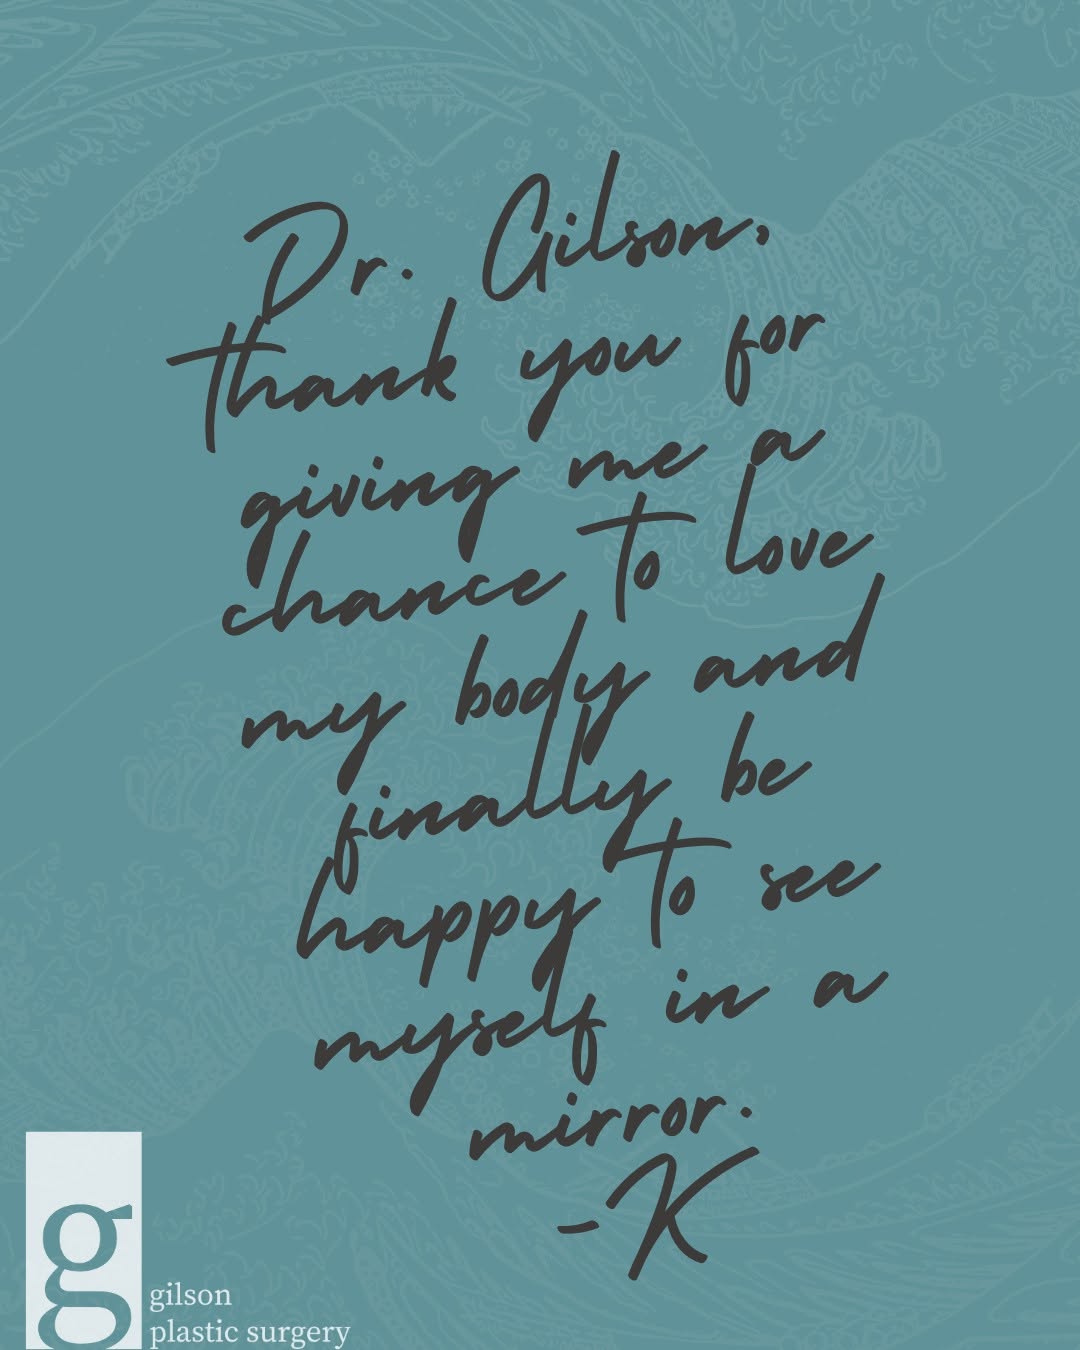 Dr. Gilson,
thank you for
giving me a
chance to love
my body and
finally be
happy to see
myself in a
mirror.
-K
g
gilson
plastic surgery